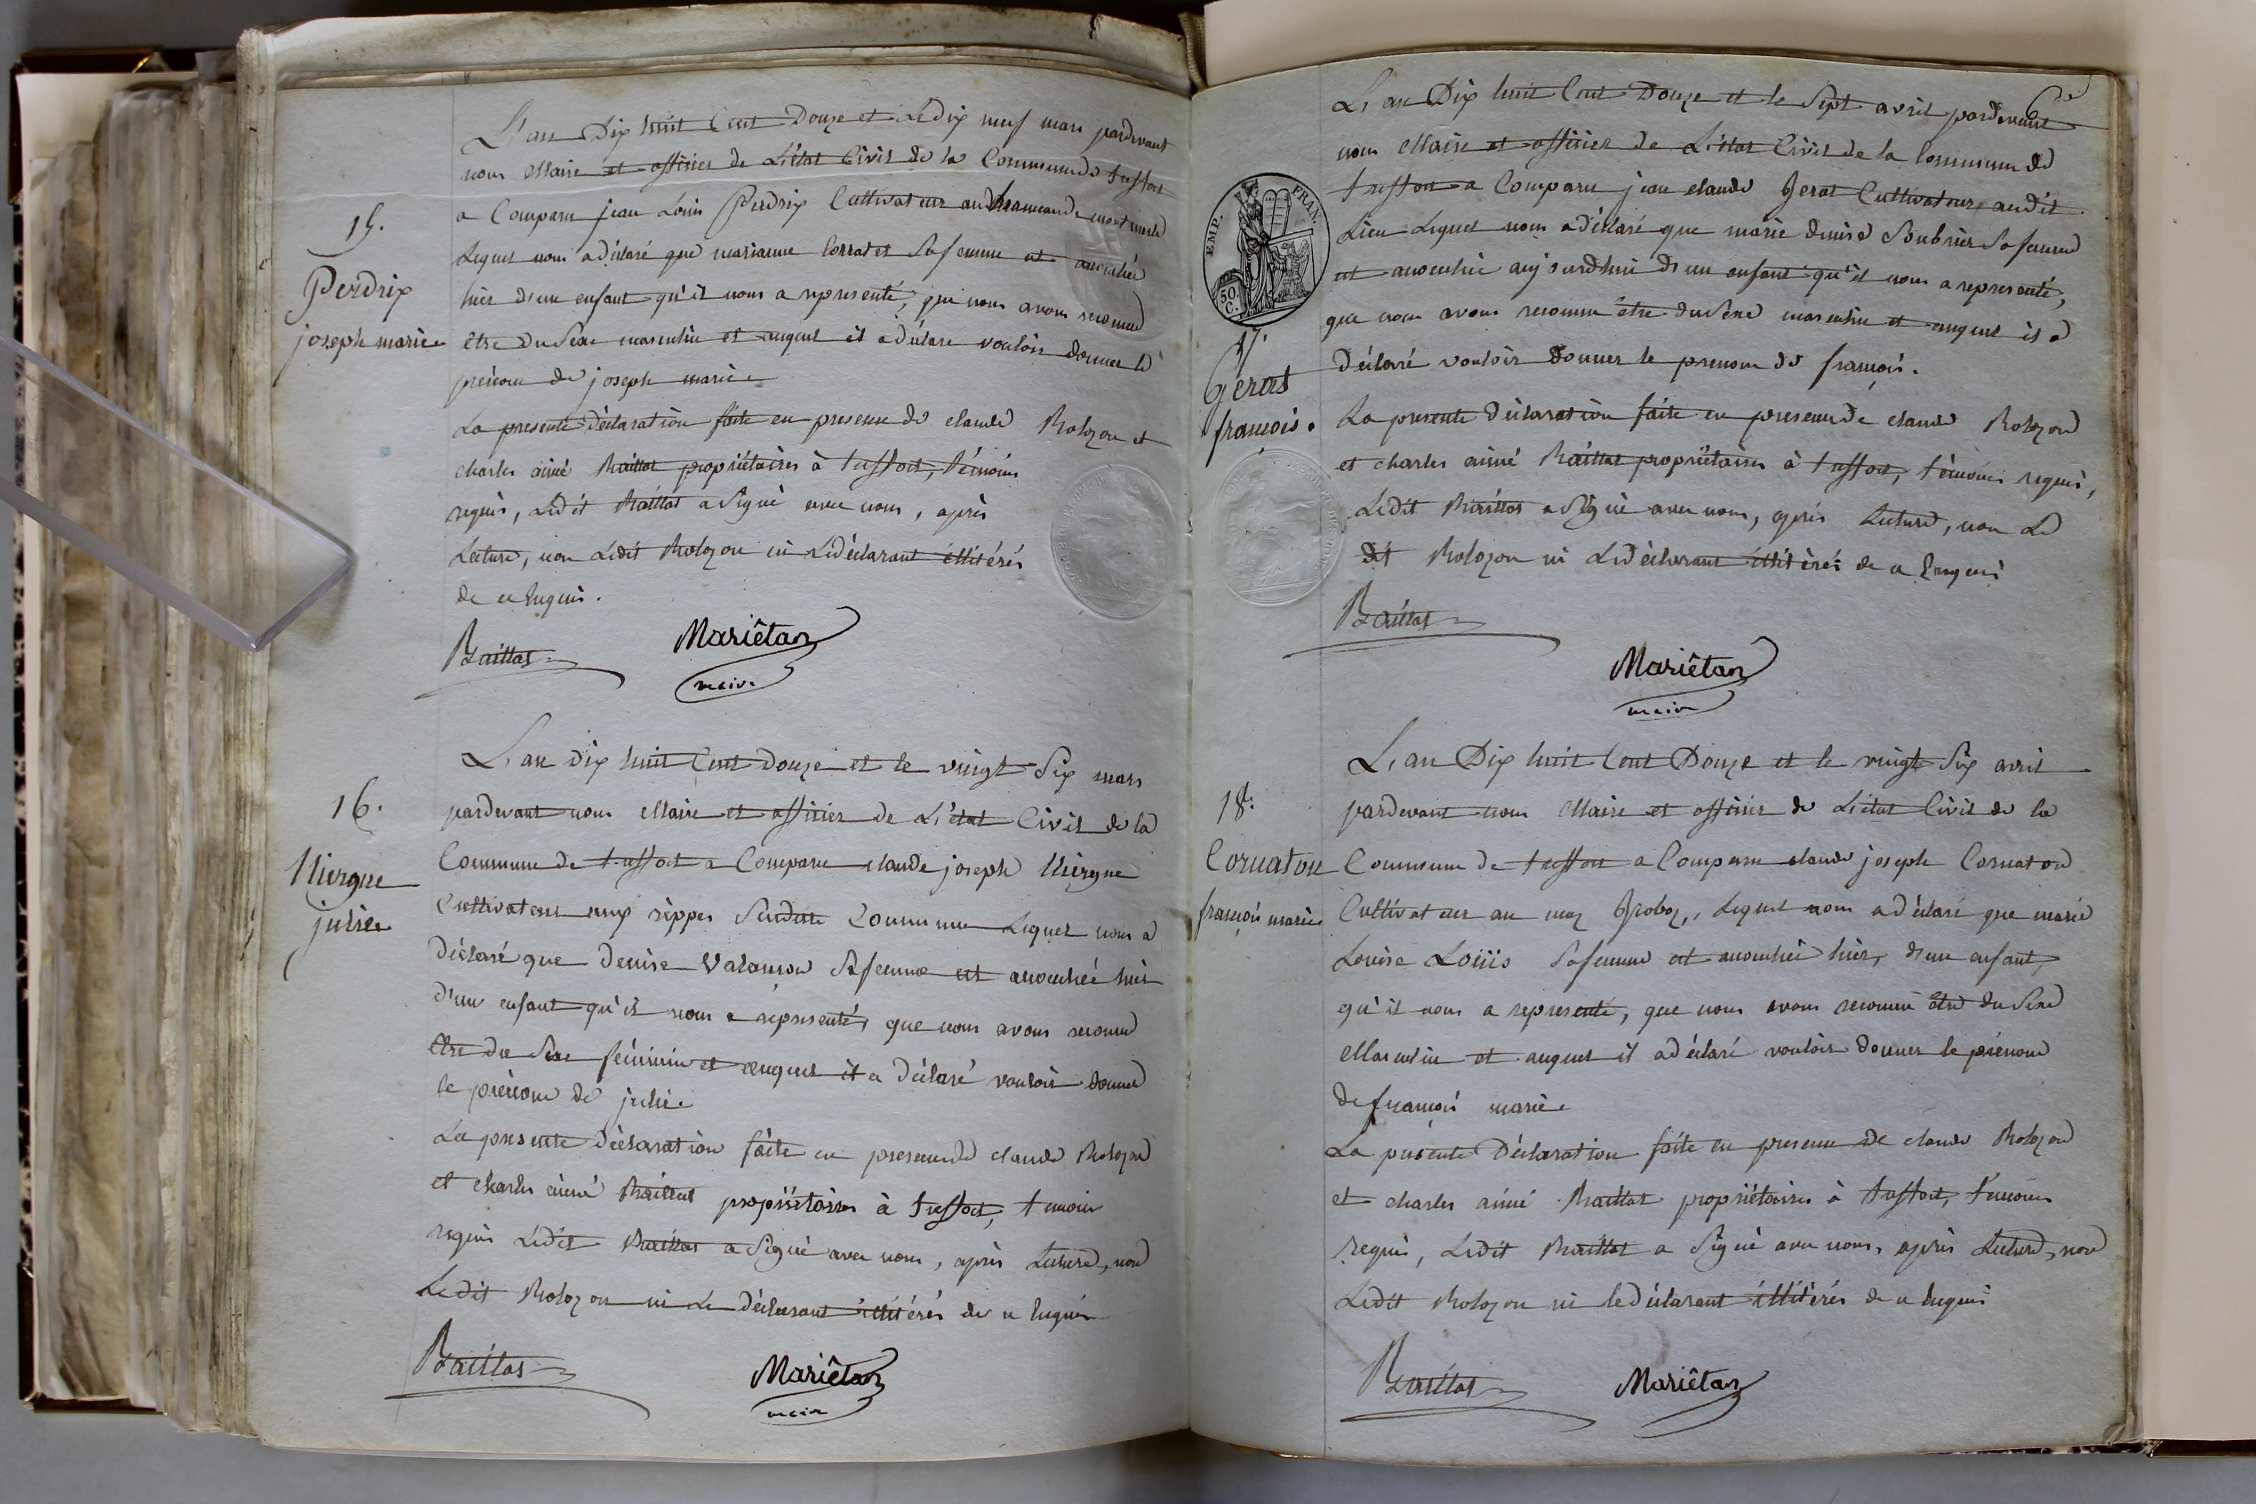 L'an Dix huit Cent Douze et Le dix neuf mars pardevant
nous Maire et officier de L'état Civil de la Commune de treffort
a Comparu jean Louis Perdrix Cultivateur au
Lequel nous a déclaré que marianne Corratet Sa femme est accouchée
hier d'un enfant qu'il nous a representé, que nous avons reconnu
etre du Sexe masculin et auquel il a déclaré vouloir donner le
prénom de joseph marie
15.
Perdrix
joseph marie
La presente déclaration faite en presence de claude Rolozon et
charles aimé Raillat propriétaires à treffort, témoins
requis, Ledit Raillat a Signé avec nous, après
Lecture, non Ledit Rolozon ni Le déclarant illitérés
de ce Enquis.
Raillat
Mariêtan
maire
L'an dix huit Cent Douze et le vingt Six mars
16.
Niergue
julie
pardevant nous Maire et officier de L'état Civil de la
Commune de treffort a Comparu claude joseph Niergue
Cultivateur aux rippes Susdite Commune Lequel nous a
Déclaré que Denise Valançon Sa femme est accouchée hier
d'un enfant qu'il nous a representé, que nous avons reconnu
être du Sexe féminin et auquel il a Déclaré vouloir donner
le prénom de julie
La presente Déclaration faite en presence de claude Rolozon
et charles aimé Raillat propriétaires à treffort, temoins
requis Ledit Raillat a Signé avec nous, après Lecture, non
Ledit Rolozon ni Le Déclarant illitérés de ce Enquis
Raillat
Mariêtan
maire
6e
L'an Dix huit Cent Douze et le Sept avril pardevant
nous Maire et officier de L'état Civil de la Commune de
treffort a Comparu jean claude Gerat Cultivateur, audit
Lieu Lequel nous a déclaré que marie denise Soubrier Sa femme
est accouchée aujourdhui d'un enfant qu'il nous a representé,
que nous avons reconnu être du Sexe masculin et auquel il a
Déclaré vouloir donner le prenom de françois.
EMP. FRAN.
50. C.
17.
Gerat
françois.
La presente Déclaration faite en presence de claude Rolozon
et charles aimé Raillat propriétaires à treffort, témoins requis,
Ledit Raillat a Signé avec nous, après Lecture, non Le
dit Rolozon ni Le Déclarant illitérés de ce Enquis
Raillat
Mariêtan
maire
L'an Dix huit Cent Douze et le vingt Six avril
18.
Cornaton
françois marie
pardevant nous Maire et officier de L'état Civil de la
Commune de treffort a Comparu claude joseph Cornaton
Cultivateur au Lequel nous a déclaré que marie
Louise Loüis Sa femme est accouchée hier, d'un enfant,
qu'il nous a representé, que nous avons reconnu être du Sexe
Masculin et auquel il a déclaré vouloir donner le prénom
de françois marie
La présente Déclaration faite en presence de claude Rolozon
et charles aimé Raillat propriétaires à treffort, témoins
requis, Ledit Raillat a Signé avec nous, après Lecture, non
Ledit Rolozon ni le déclarant illitérés de ce Enquis
Raillat
Mariêtan